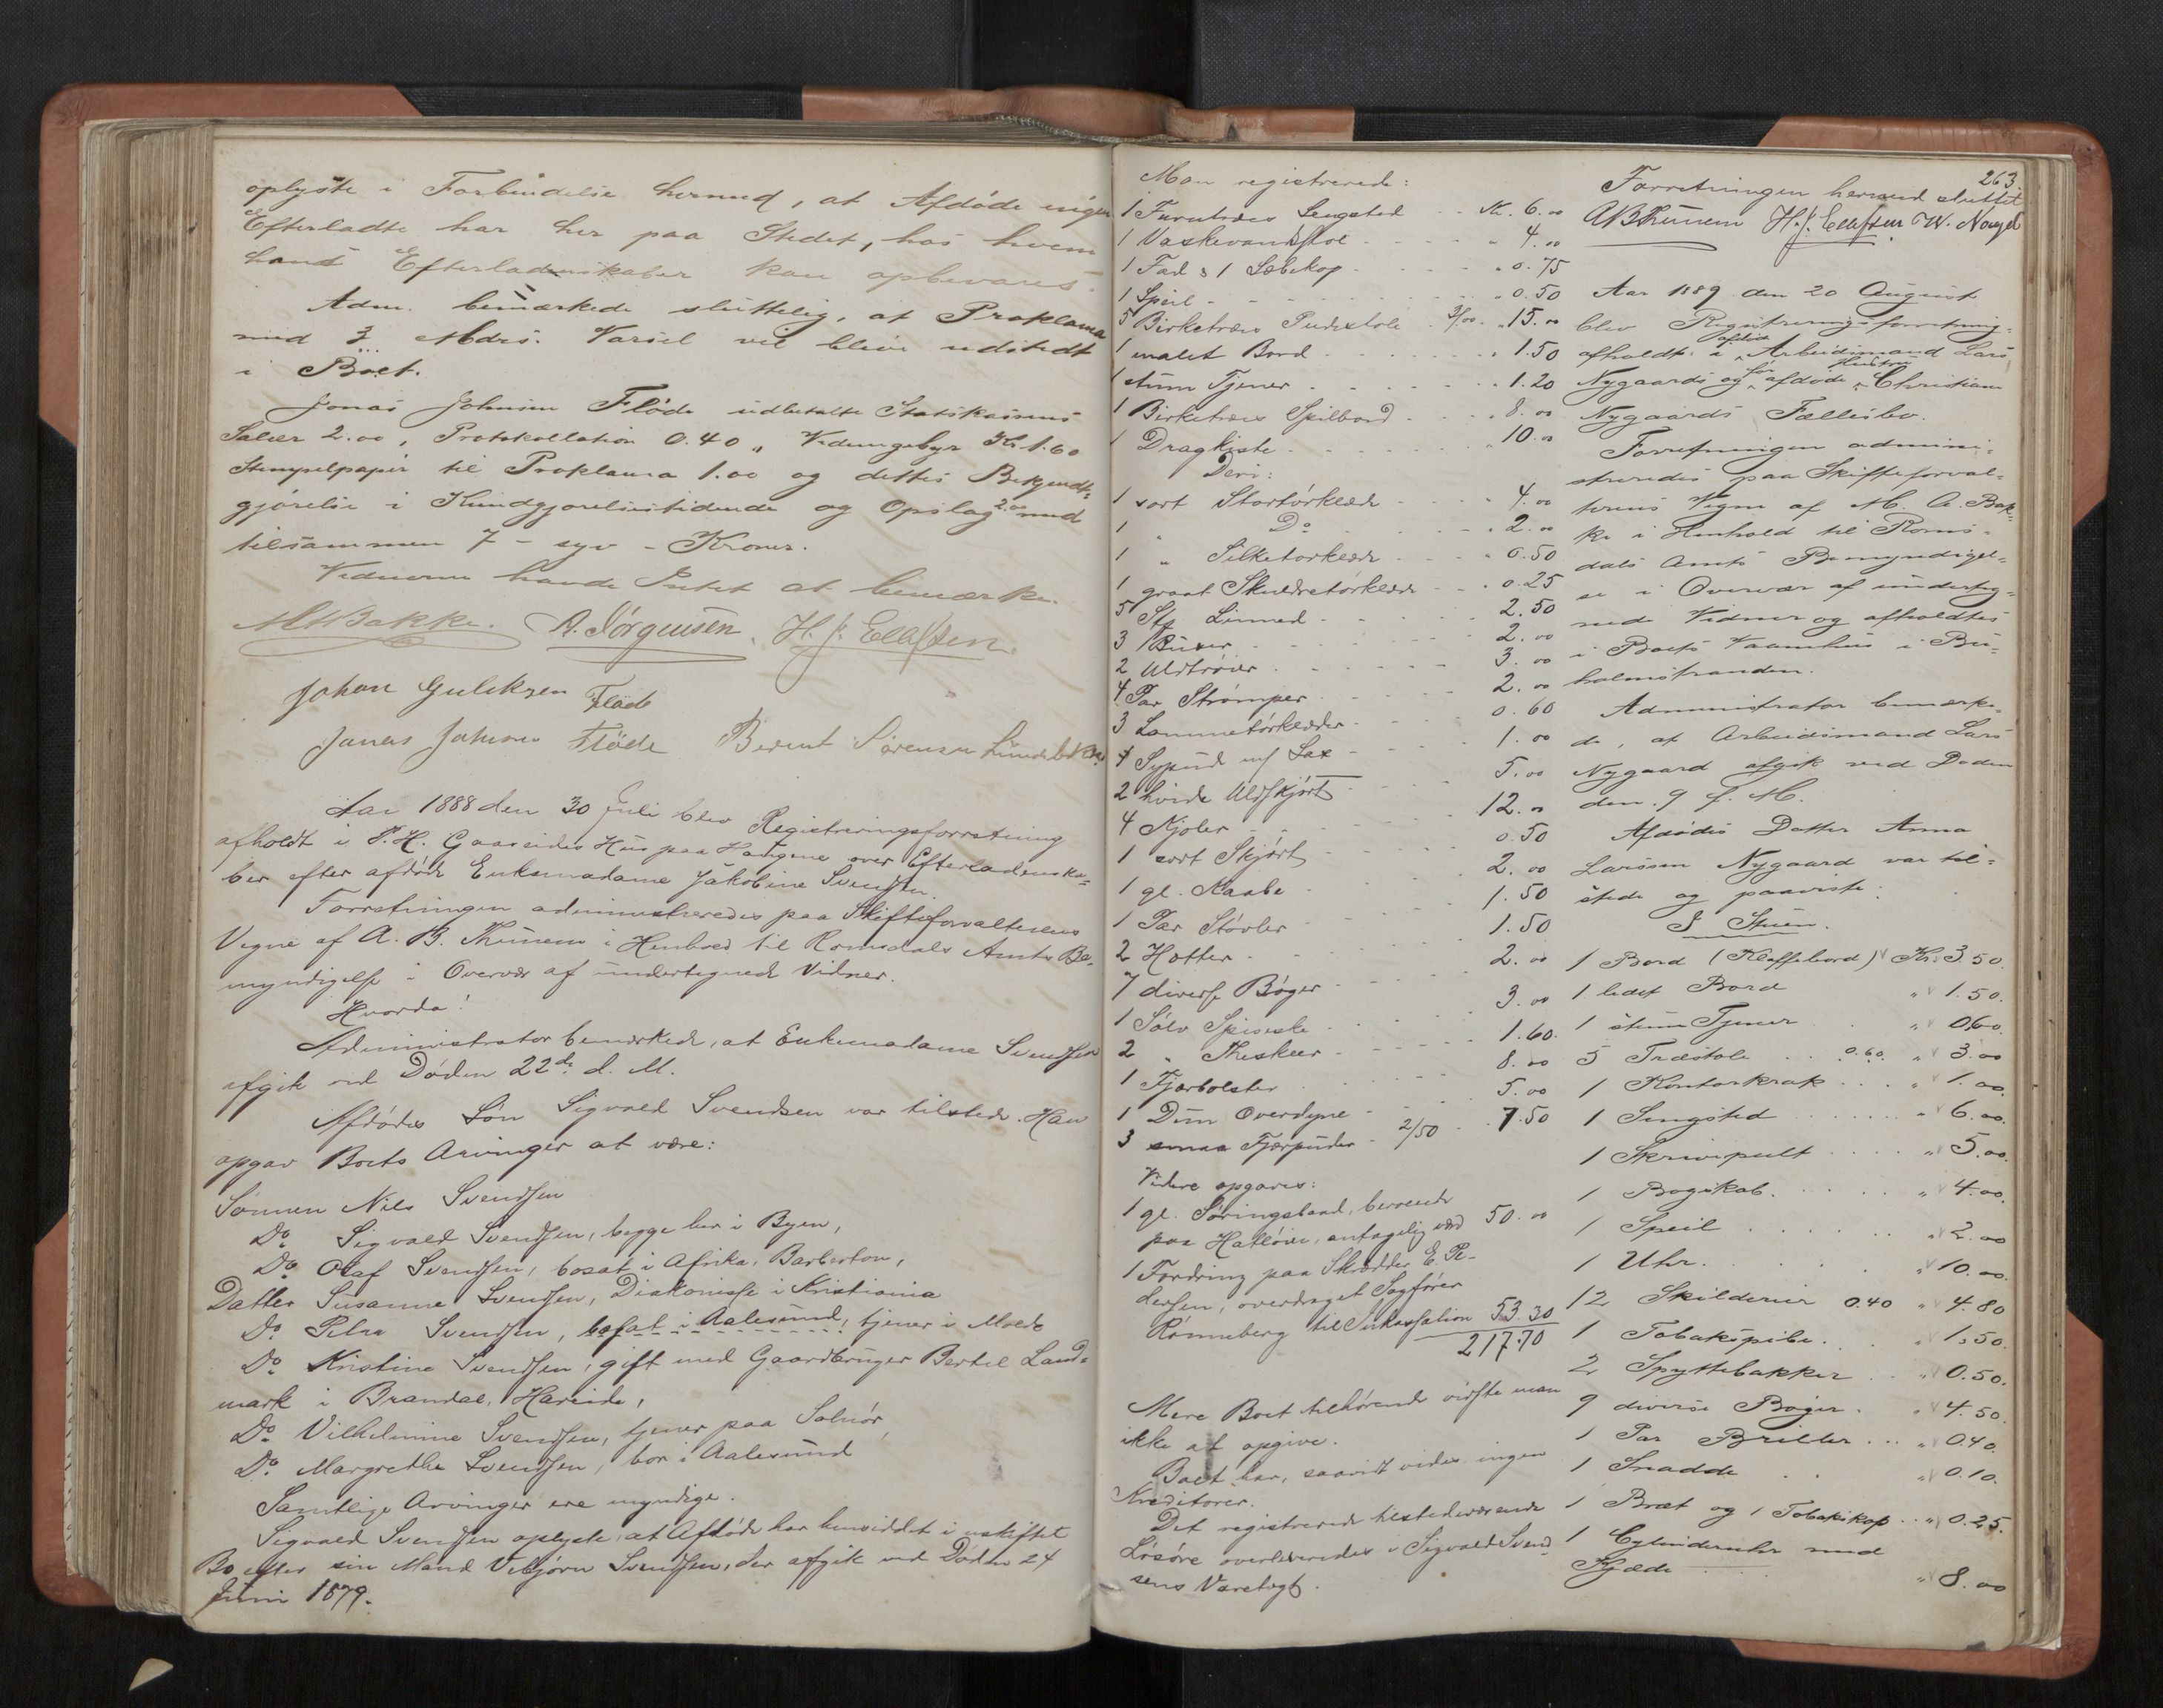 oplyste i Forbindelse hermed, at Afdøde ingen
Efterladte har her paa Stedet, hos hvem
hans Efterladenskaber kan opbevares.
Adm. bemærkede sluttelig, at Proklama
med 3 Mdrs. Varsel vil blive udstedt
i Boet.
Jonas Johnsen Fløde udbetalte Statskassens
Salær 2.00, Protokollation 0.40 „ Vidnegebyr Kr. 1.60
Stempelpapir til Proklama 1.00 og dettes Bekjendt-
gjørelse i Kundgjørelsestidende og Opslag 2.00 med
tilsammen 7 - syv - Kroner.
Vidnerne havde Intet at bemærke.
M A Bakke. A. Jørgensen. H. J. Ellefsen.
Johan Guliksen Fløde
Jonas Johnsen Fløde Berent Sørensen
Aar 1888 den 30 Juli blev Registreringsforretning
afholdt i P. H. Gaaseides Hus paa Haugene over Efterladenska-
ber efter afdøde Enkemadame Jakobine Svendsen
Forretningen administreredes paa Skifteforvalterens
Vegne af A. B. Thunem i Henhold til Romsdals Amts Be-
myndigelse i Overvær af undertegnede Vidner.
Hvorda!
Administrator bemærkede, at Enkemadame Svendsen
afgik ved Døden 22de d. M.
Afdødes Søn Sigvald Svendsen var tilstede. Han
opgav Boets Arvinger at være:
Sønnen Nils Svendsen
Do. Sigvald Svendsen, begge her i Byen,
Do. Olaf Svendsen, bosat i Afrika, Barberton,
Datter Susanne Svendsen, Diakonisse i Kristiania
Do. Petra Svendsen, bosat i Aalesund, tjener i Molde
Do. Kristine Svendsen, gift med Gaardbruger Bertel Land-
mark i Brandal, Hareide,
Do. Vilhelmine Svendsen, tjener paa Solnør,
Do. Margrethe Svendsen, bor i Aalesund
Samtlige Arvinger ere myndige.
Sigvald Svendsen oplyste, at Afdøde har hensiddet i uskiftet
Bo efter sin Mand Vebjørn Svendsen, der afgik ved Døden 24
Juni 1879.
Man registrerede:
1 Furutræes Sengsted Kr. 6.00
1 Vaskevandstol „ 4.00
1 Fad & 1 Sæbekop „ 0.75
1 Speil „ 0.50
5 Birketræes Pudestole 3/00 „ 15.00
1 malet Bord „ 1.50
1 stum Tjener „ 1.20
1 Birketræes Spilbord „ 8.00
1 Dragkiste „ 10.00
Deri:
1 sort Stortørklæde „ 4.00
1 „ Do „ 2.00
1 „ Silketørklæde „ 0.50
1 graat Skuldretørklæde „ 0.25
5 Stk Linned 2.50
3 Buxer 2.00
2 Uldtrøier 3.00
4 Par Strømper 2.00
3 Lommetørklæder 0.60
1 Sypude m/ Sax 1.00
2 hvide Uldskjørt 5.00
4 Kjoler 12.00
1 sort Skjørt 0.50
1 gl. Kaabe 2.00
1 Par Støvler 1.50
2 Hatter 1.50
7 diverse Bøger 2.00
1 Sølv Spiseske 3.00
2 „ Theskeer 1.60.
1 Fjærbolster 8.00
1 Dun Overdyne 5.00
3 smaa Fjærpuder 2/50 7.50
Videre opgaves:
1 gl. Søringsbaad, beroende
paa Hatløen, antagelig værd 50.00
1 Fordring paa Skrædder E. Pe-
dersen, overdraget Sagfører
Rønneberg til Inkassation 53.30
217.70
Mere Boet tilhørende vidste man
ikke at opgive.
Boet har, saavidt vides ingen
Kreditorer.
Det registrerede tilstedeværende
Løsøre overleveredes i Sigvald Svend-
sens Varetægt.
263
Forretningen hermed sluttet.
A B Thunem H. J. Ellefsen W. Nagel
Aar 1889 den 20 August
blev Registreringsforretning
afholdt i afdøde Arbeidsmand Lars
Nygaards og før afdøde Hustru Christiane
Nygaards Fællesbo.
Forretningen admini-
streredes paa Skifteforval-
terens Vegne af M. A. Bak-
ke i Henhold til Roms-
dals Amts Bemyndigel-
se i Overvær af underteg-
nede Vidner og afholdtes
i Boets Vaanhus i Bu-
holmstranden.
Administrator bemærke-
de, at Arbeidsmand Lars
Nygaard afgik ved Døden
den 9 f. M.
Afdødes Datter Anna
Larssen Nygaard var til-
stede og paaviste:
I Stuen.
1 Bord (Klaffebord) Kr. 3.50.
1 lidet Bord „ 1.50.
1 stum Tjener „ 0.60.
5 Træstole 0.60. „ 3.00
1 Kontorkrak „ 1.00.
1 Sengsted „ 6.00.
1 Skrivepult „ 5.00.
1 Bogskab. „ 4.00.
1 Speil „ 2.00
1 Uhr. „ 10.00.
12 Skilderier 0.40 „ 4.80
1 Tobakspibe. „ 1.50.
2 Spyttebakker „ 0.50.
9 diverse Bøger. „ 4.50.
1 Par Briller „ 0.40.
1 Snadde „ 0.10.
1 Bræt og 1 Tobakskop „ 0.25.
1 Cylinderuhr med
Kjæde „ 8.00